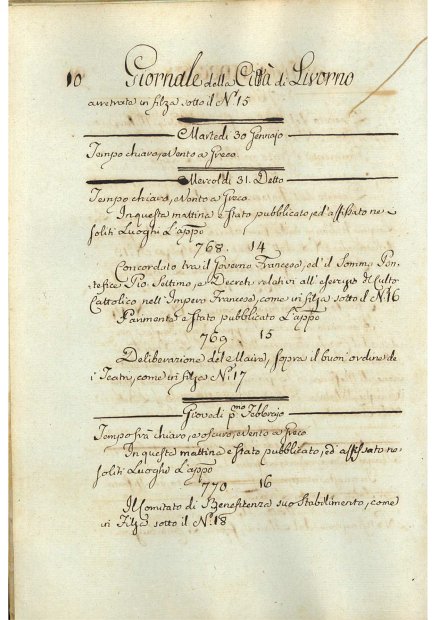 10 Giornale della Città di Livorno
arretrate in filza sotto il N.º 15
Martedì 30 Gennajo
Tempo chiaro, e Vento a Greco.
Mercoldì 31. Detto
Tempo chiaro, e Vento a Greco.
In questa mattina è stato pubblicato, ed' affissato ne
soliti Luoghi L'appº
768. 14
Concordato tra il Governo Francese, ed' il Sommo Pon-
tefice Pio Settimo, e Decreti relativi all' esercizio del Culto
Cattolico nell' Impero Francese, come in filza sotto il N.º 16
Parimente è stato pubblicato L'appº
769 15
Deliberazione del Maire, sopra il buon' ordine de
i Teatri, come in filza N.º 17
Giovedì pmo Febbrajo
Tempo frà chiaro, e oscuro, e Vento a Greco
In questa mattina è stato pubblicato, ed' affissato ne
soliti Luoghi L'appº
770 16
Il Comitato di Beneficenza suo stabilimento, come
in Filza sotto il N.º 18